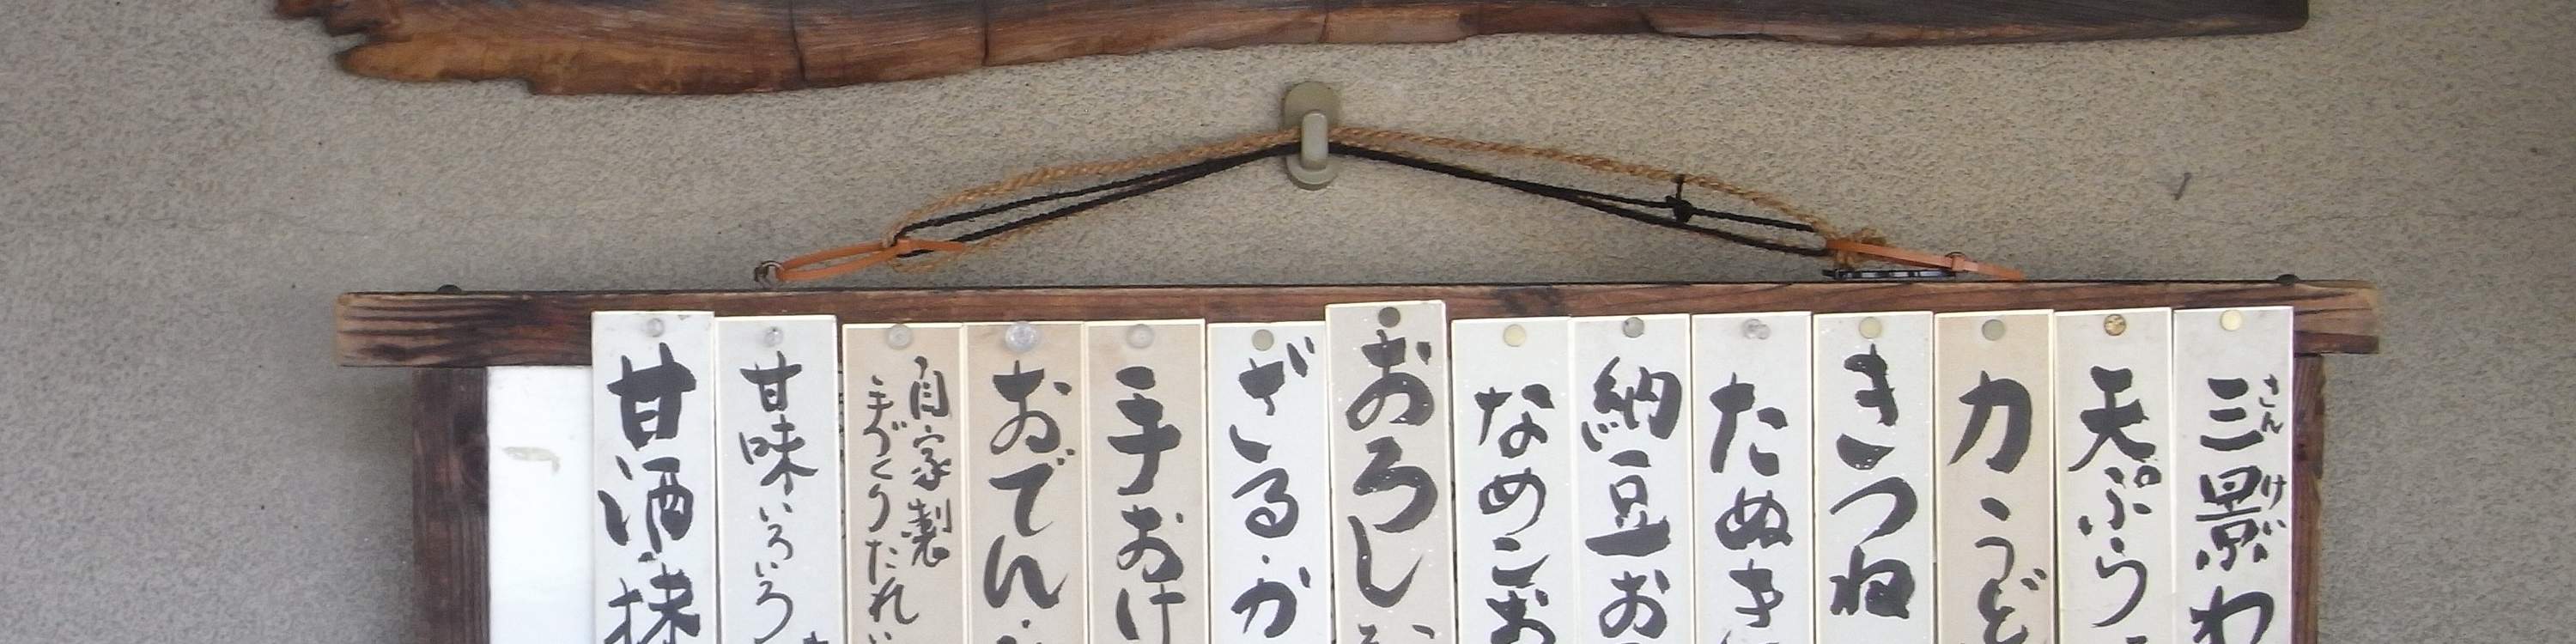 三景わ
さんけい
天ぷら
力うど
きつね
たぬき
納豆お
なめこお
おろし
ざる・が
手おけ
おでん・
自家製
手づくりたれ
甘味いろいろ
甘酒・抹